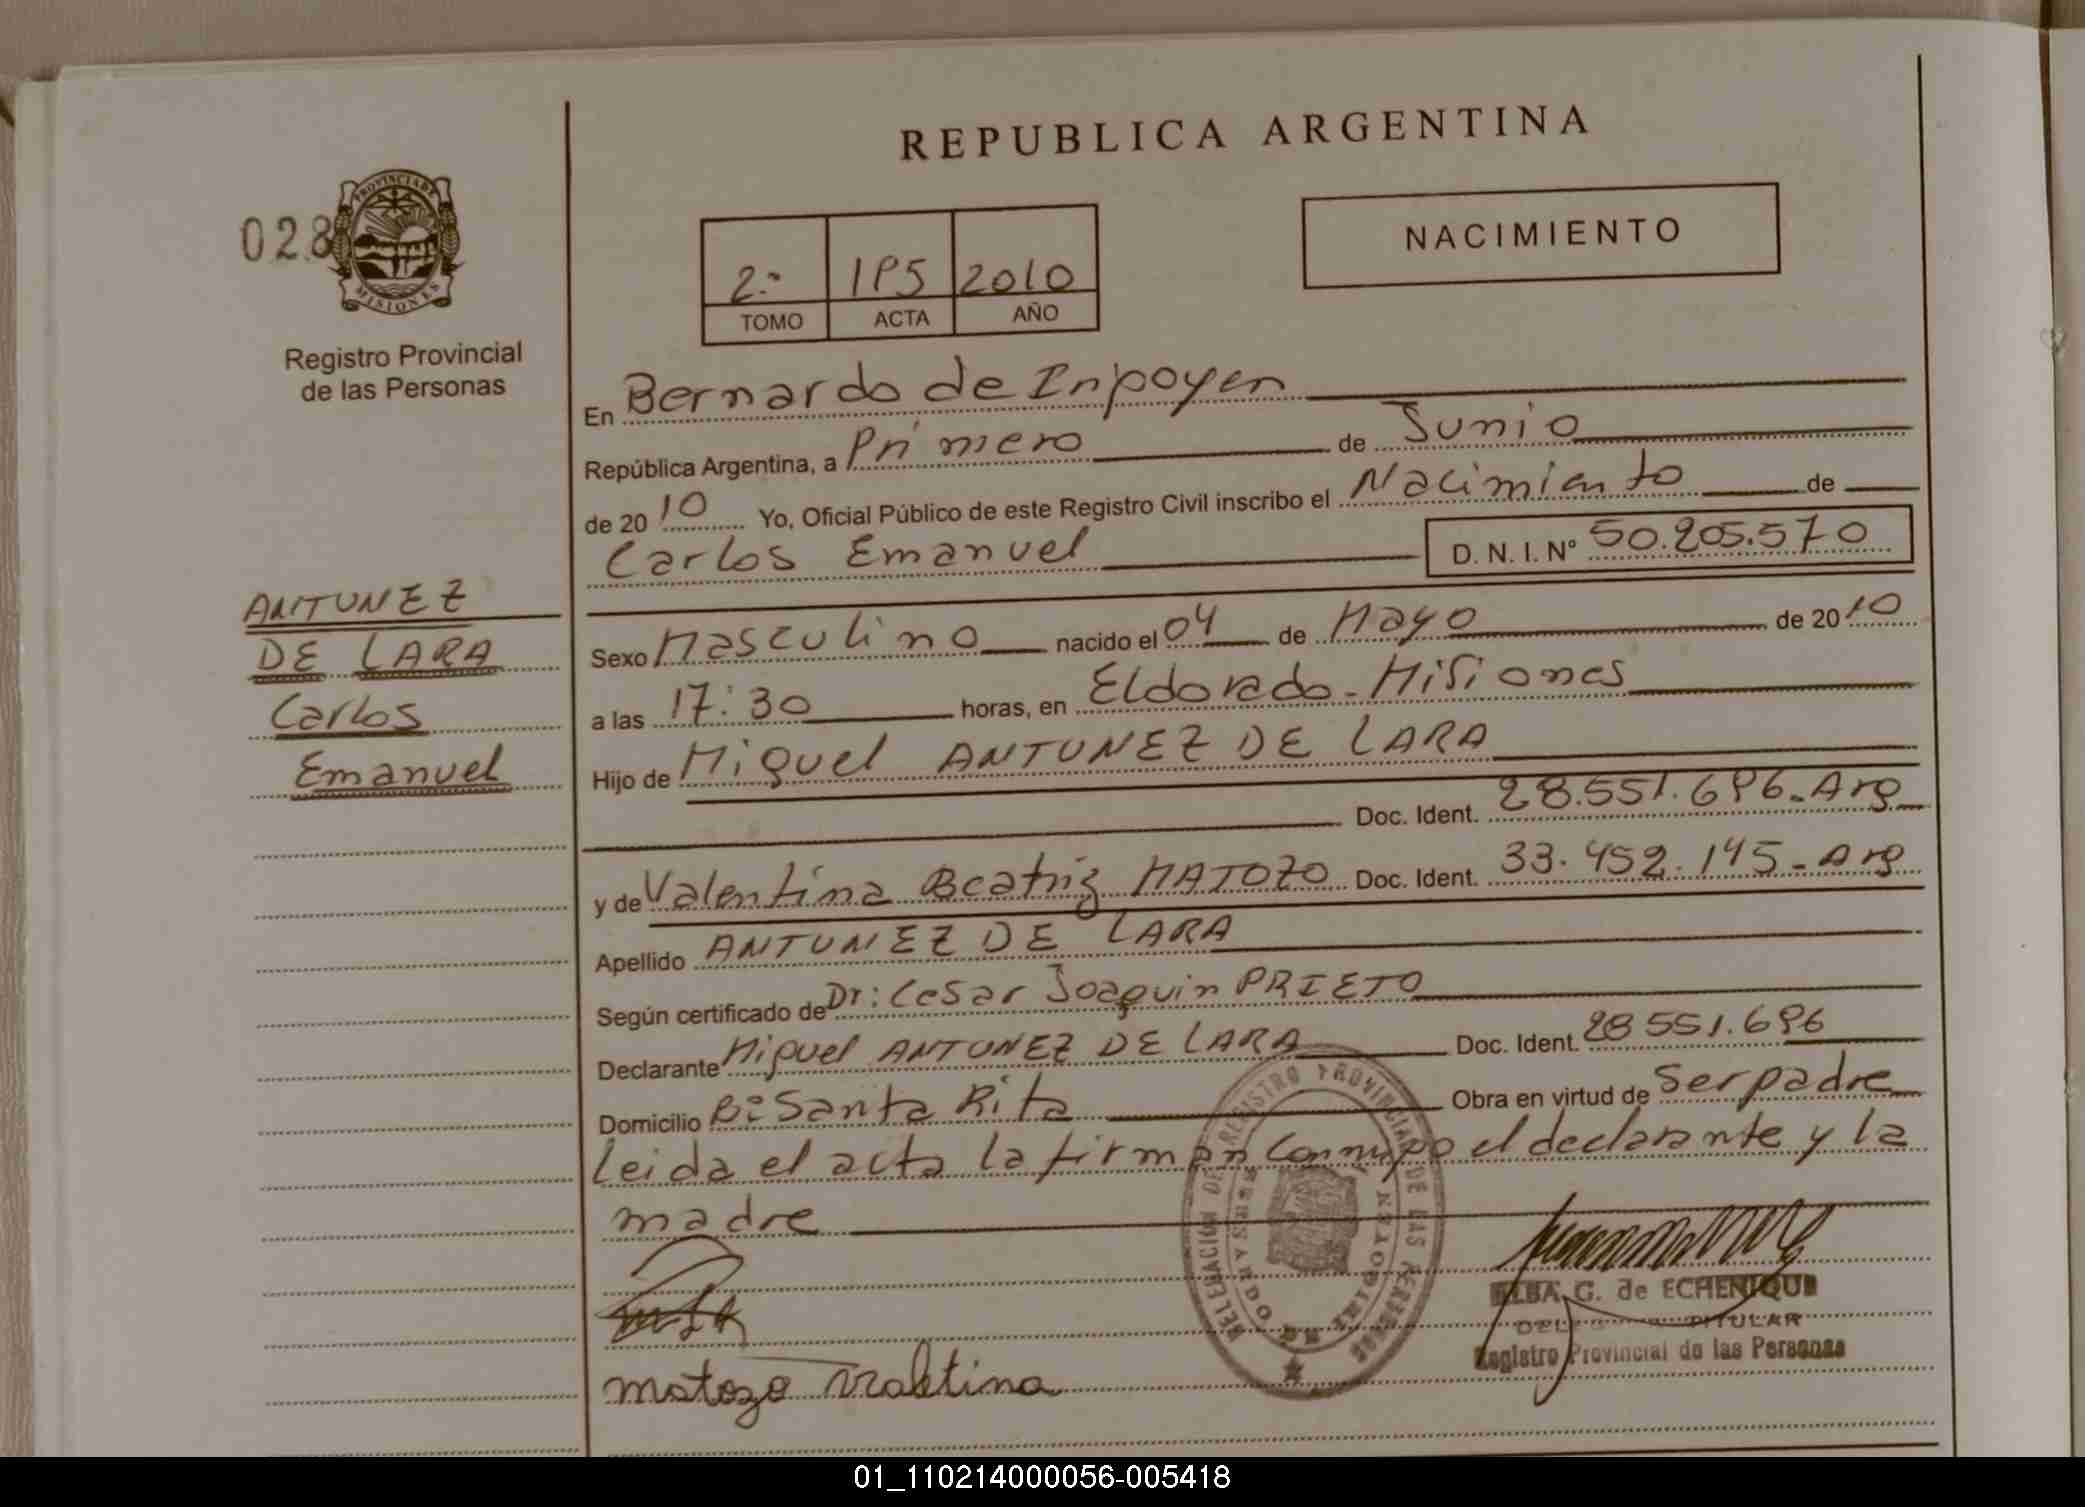 REPUBLICA ARGENTINA
028
PROVINCIA DE
MISIONES
Registro Provincial
de las Personas
NACIMIENTO
2º 195 2010
TOMO ACTA AÑO
En Bernardo de Irigoyen
República Argentina, a Primero de Junio
de 2010 Yo, Oficial Público de este Registro Civil inscribo el Nacimiento de
Carlos Emanuel D. N. I. Nº 50.205.570
ANTUNEZ
DE LARA
Carlos
Emanuel
Sexo Masculino nacido el 04 de Mayo de 2010
a las 17:30 horas, en Eldorado - Misiones
Hijo de Miguel ANTUNEZ DE LARA
Doc. Ident. 28.551.696 - Arg
y de Valentina Beatriz MATOZO Doc. Ident. 33.452.195 - Arg
Apellido ANTUNEZ DE LARA
Según certificado de Dr: Cesar Joaquin PRIETO
Declarante Miguel ANTUNEZ DE LARA Doc. Ident. 28 551.696
Domicilio Bº Santa Rita Obra en virtud de Ser padre
Leida el acta la firman conmigo el declarante y la
madre
DE REGISTRO PROVINCIAL DE LAS PERSONAS
BERNARDO DE IRIGOYEN
ELBA G. de ECHENIQUE
TITULAR
Registro Provincial de las Personas
matozo
01_110214000056-005418